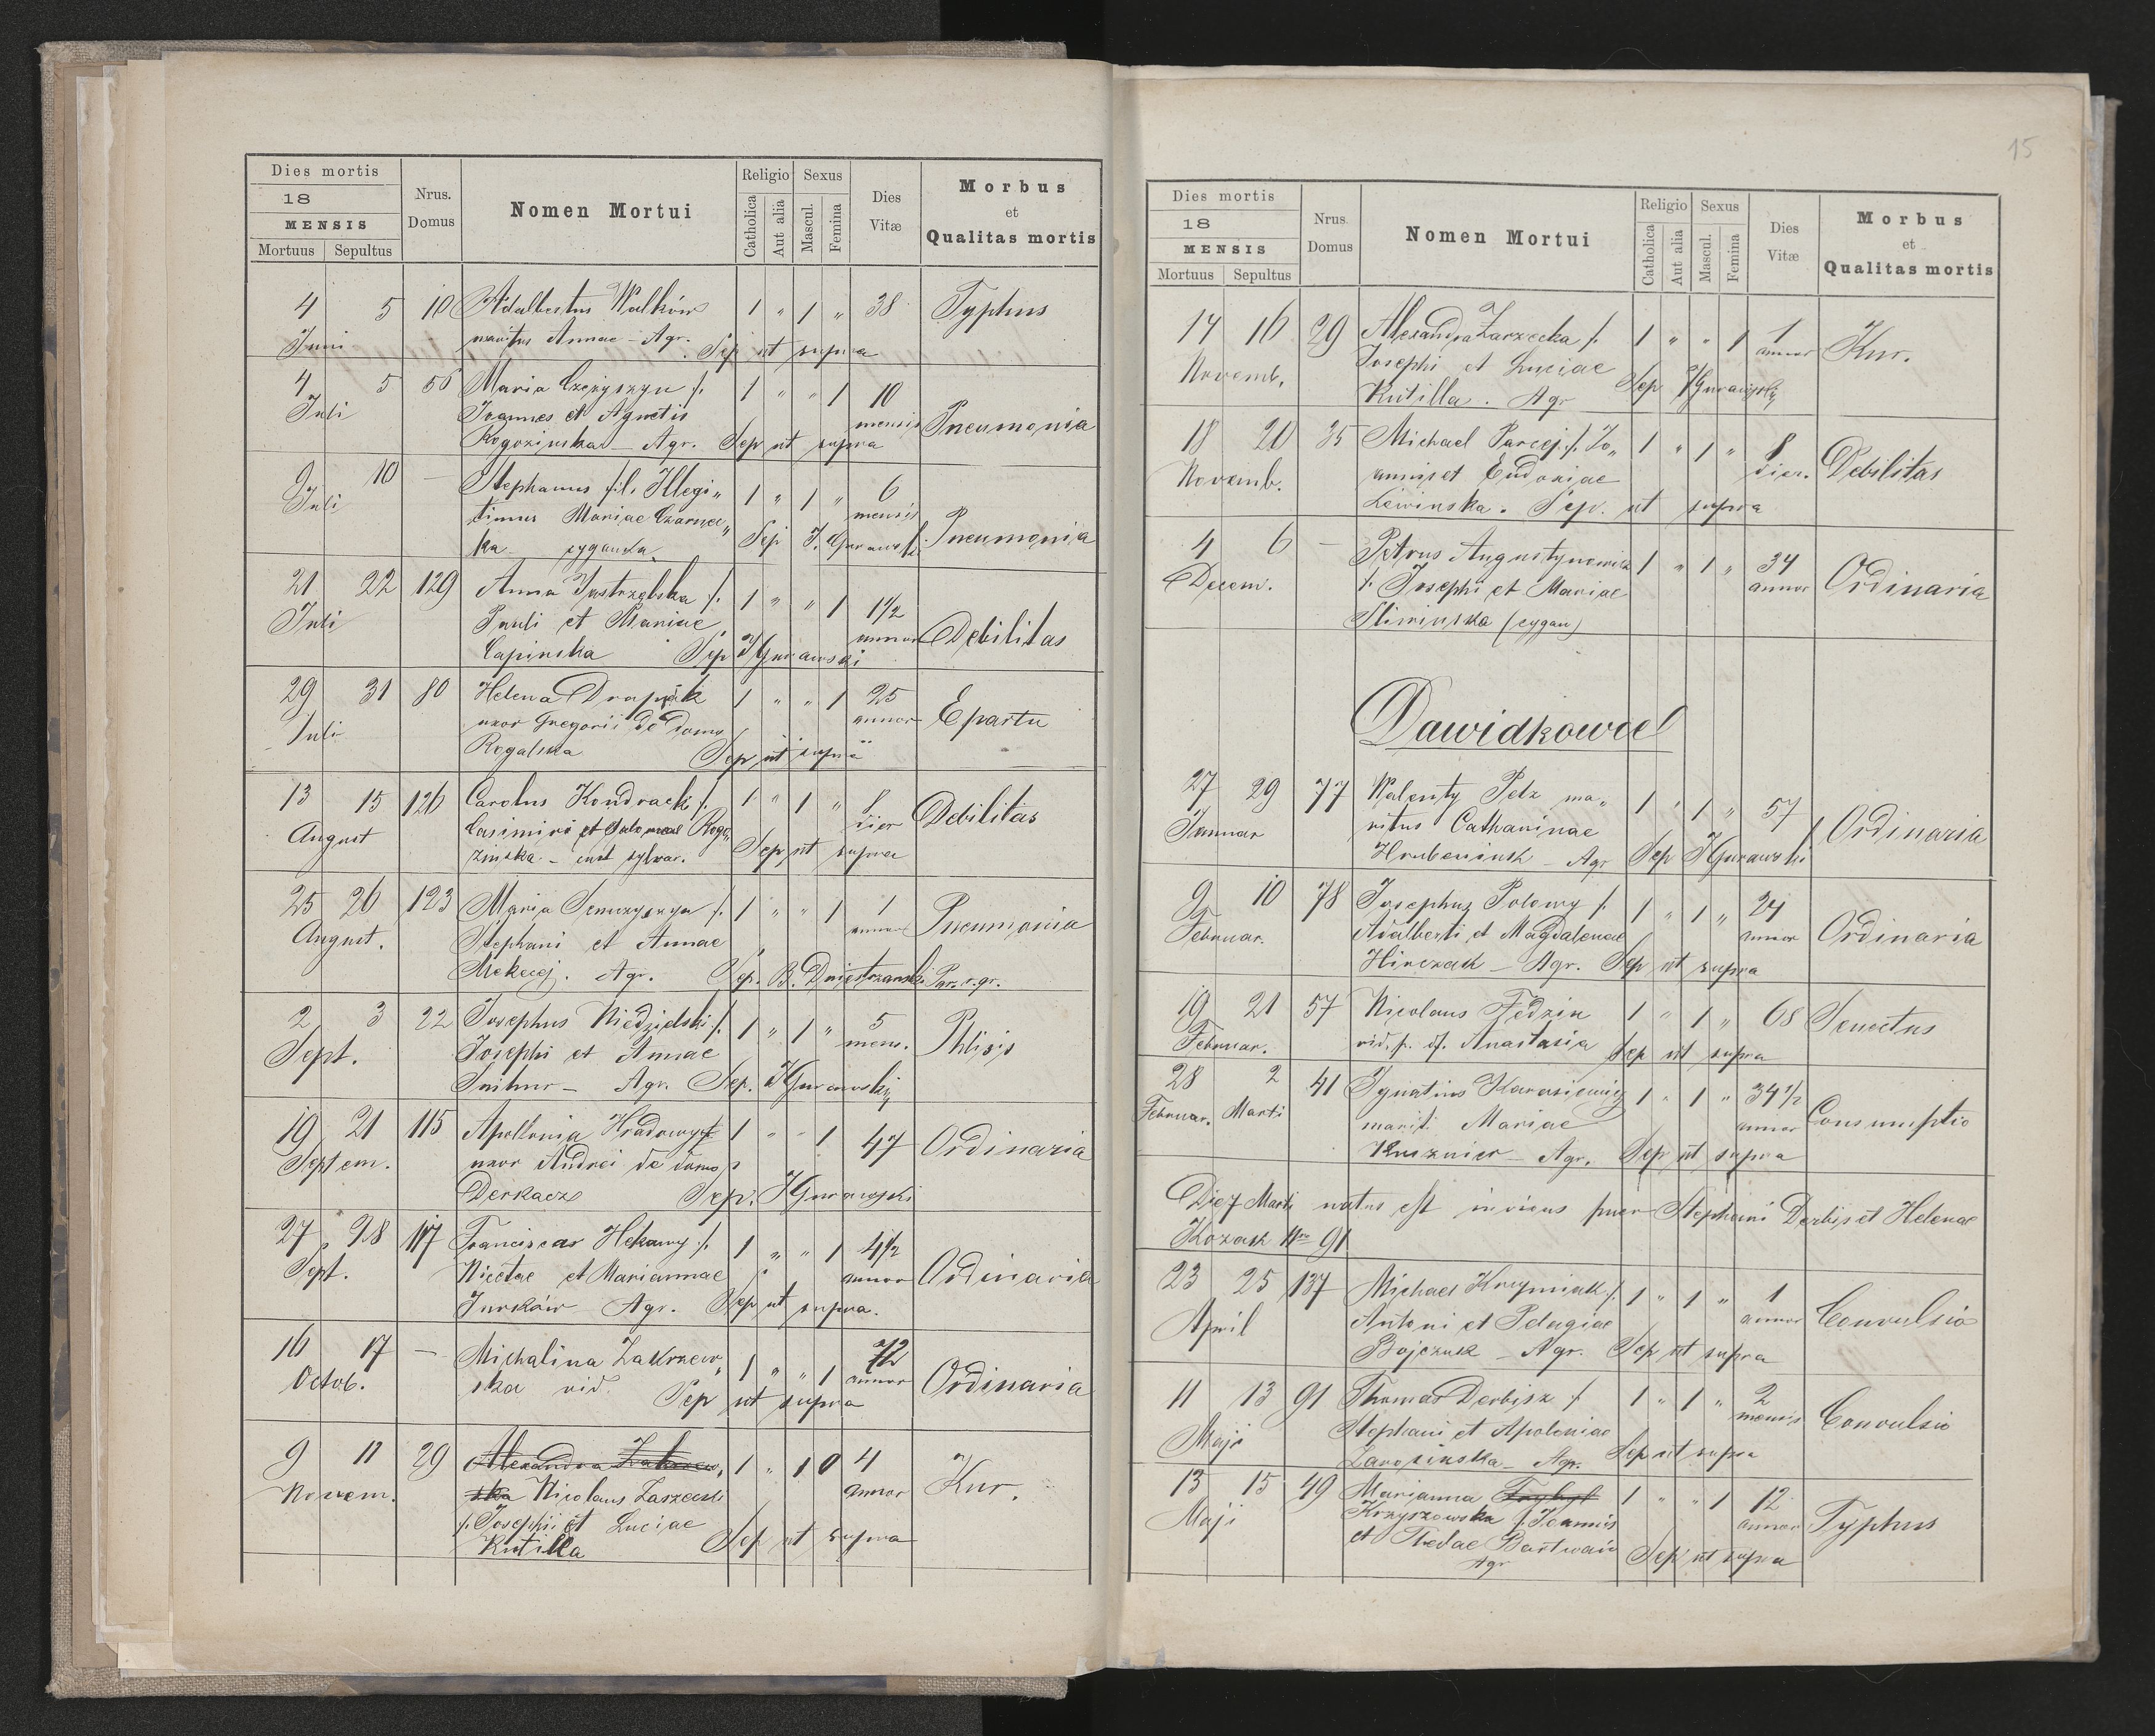 Dies mortis
18
MENSIS
Mortuus Sepultus
Nrus. Domus
Nomen Mortui
Religio Sexus
Catholica Aut alia Mascul. Femina
Dies Vitæ
Morbus
et
Qualitas mortis
4 5 10 Adalbertus Walków 1 " 1 " 38 Typhus
Juni maritus Annae - Agr. Sep ut supra
4 5 56 Maria f. 1 " " 1 10
Juli Joannes et Agnetis mensis Pneumonia
Rogozinska - Agr. Sep ut supra
9 10 — Stephanus fil. Illegi„ 1 " 1 " 6
Juli timus Mariae Czarnec„ mensis
ka cyganka Sep J. Gurawski Pneumonia
21 22 129 Anna Jastrzębska f. 1 " " 1 1 1/2
Juli Pauli et Mariae annor Debilitas
Capinska Sep J Gurawski
29 31 80 Helena Drapak 1 " " 1 25
Juli uxor Gregorii de domo annor E partu
Rogalska Sep ut supra
13 15 126 Carolus Kondracki f. 1 " 1 " 8 Debilitas
August Casimiri et Salomeae Rogo„ dier
zinska - cust sylvar. Sep ut supra
25 26 123 Maria f. 1 " " 1 1 Pneumonia
August. Stephani et Annae annor
Mekecej. Agr. Sep. B. Dniestrzanski Par. r. gr.
2 3 22 Josephus Niedzielski f. 1 " 1 " 5 Phtisis
Sept. Josephi et Annae mens.
Snihur - Agr. Sep. J Gurawski
19 21 115 Apollonia 1 " " 1 47 Ordinaria
Septem. uxor Andrei de domo
Derkacz Sep. J Gurawski
27 28 117 Franciscas Hekawy f. 1 " " 1 4 1/2
Sept. Nicetae et Mariannae annor Ordinaria
Jurków - Agr. Sep ut supra.
16 17 — Michalina Zakrzew„ 1 " " 1 72
Octob. ska vid. annor Ordinaria
Sep ut supra
9 11 29 Alexandra Zakrzew„ 1 " 1 0 4
Novem. ska Nicolaus Zarzecki annor Kur.
f. Josephi et Luciae
Kutilla Sep ut supra
15
Dies mortis
18
MENSIS
Mortuus Sepultus
Nrus. Domus
Nomen Mortui
Religio Sexus
Catholica Aut alia Mascul. Femina
Dies Vitæ
Morbus
et
Qualitas mortis
14 16 29 Alexandra Zarzecka f. 1 " " 1 1 Kur.
Novemb. Josephi et Luciae annor
Kutilla. Agr Sep J Gurawski
18 20 35 Michael Parcej f. Jo„ 1 " 1 " 8
Novemb. annis et Eudoxiae dier. Debilitas
Lewinska. Sep. ut supra
4 6 — Petrus Augustynowicz 1 " 1 " 34
Decem. f. Josephi et Mariae annor Ordinaria
Sliwinska (cygan)
Dawidkowce
27 29 77 Walenty Petz ma„ 1 " 1 " 57
Januar ritus Catharinae Ordinaria
Hrubeniuk - Agr Sep J Gurawski
9 10 78 Josephus Polowy f. 1 " 1 " 24
Februar. Adalberti et Magdalenae annor Ordinaria
Hinczak - Agr. Sep ut supra
19 21 57 Nicolaus Fedzin 1 " 1 " 68 Senectus
Februar. vid. p. of. Anastasia Sep ut supra
28 2 41 Ignatius Karasiewicz 1 " 1 " 34 1/2
Februar. Marti marit. Mariae annor Consumptio
Kusznier - Agr. Sep ut supra
Die 7 Marti natus est puer Stephani Derbis et Helenae
Kozak Nro 91
23 25 137 Michael f. 1 " 1 " 1
April Antoni et Pelagiae annor Convulsio
Bojczuk - Agr. Sep ut supra
11 13 91 Thomas Derbisz f. 1 " 1 " 2
Maji Stephani et Apoloniae mensis Convulsio
Agr. Sep ut supra
13 15 49 Marianna 1 " " 1 12
Maji Krzyszowska f. Joannis annor Typhus
et Theclae
Agr Sep ut supra